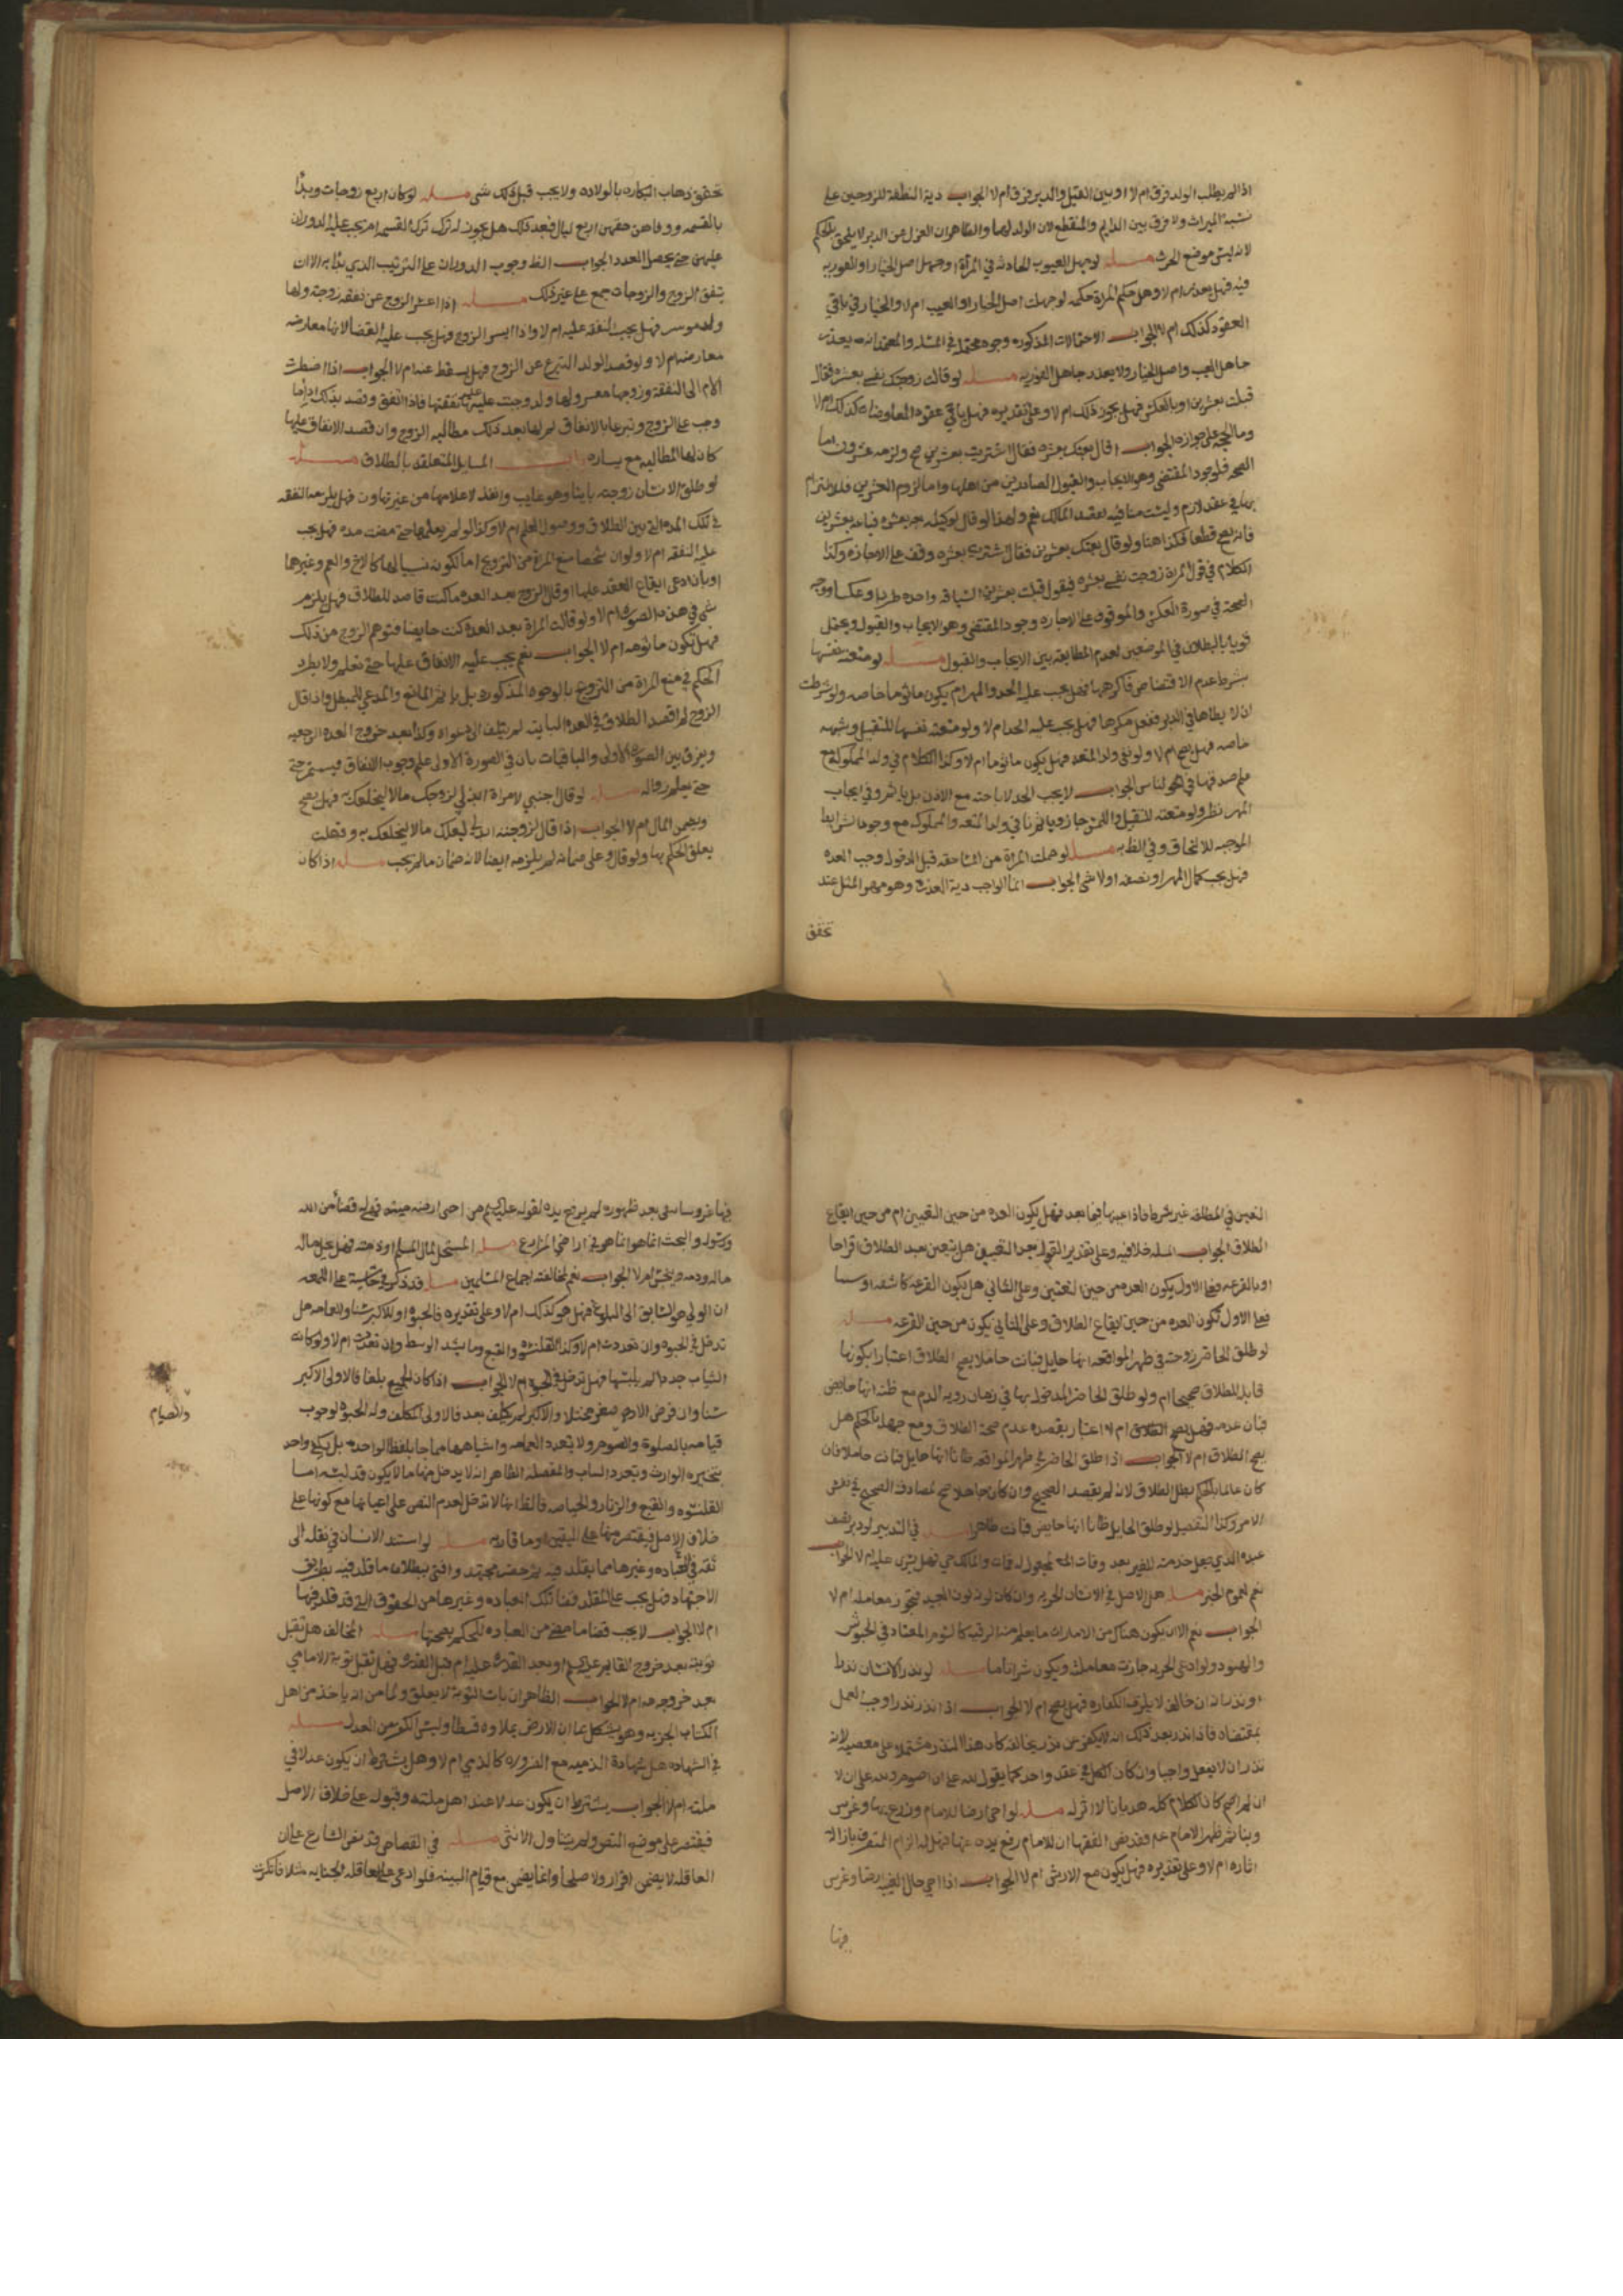 اذا لم يطلب الولد فرق ام لا او بين القبل والدبر فرق ام لا الجواب دية النطفة للزوجين على
نسبة الميراث ولا فرق بين الدايم والمنقطع لان الولد لهما والظاهر ان العزل عن الدبر لا يلحق بالحكم
لانه ليس موضع الحرث مسله لو جهل العيوب الحادثه في المراة او جهل اصل الخيار او الفوريه
فيه فهل يعذر ام لا وهل حكم المراة حكمه لو جهلت اصل الخيار او العيب ام لا والخيار في باقي
العقود كذلك ام لا الجواب الاحتمالات المذكوره وجوه محتمله في المسله والمعتمد انه يعذر
جاهل العيب واصل الخيار ولا يعذر جاهل الفوريه مسله لو قالت زوجتك نفسي بعشره فقال
قبلت بعشرين او بالعكس فهل يجوز ذلك ام لا وعلى تقديره فهل باقي عقود المعاوضات كذلك ام لا
وما الحجه على جوازه الجواب اذا قال بعتك بعشره فقال اشتريت بعشرين صح ولزمه عشرون اما
الصحه فلوجود المقتضي وهو الايجاب والقبول الصادرين من اهلها واما لزوم العشرين فلالتزام
بها في عقد لازم وليست منافيه لعقد المالك نعم ولهذا لو قال لوكيله بع بعشره فباعه بعشرين
فانه يصح قطعا فكذا هنا ولو قال بعتك بعشرين فقال اشتريت بعشره وقف على الاجازه وكذا
الكلام في قول المراة زوجت نفسي بعشره فيقول قبلت بعشرين السياق واحد طردا وعكسا ووجه
الصحة في صورة العكس والموقوف على الاجازه وجود المقتضي وهو الايجاب والقبول ويحتمل
قويا بالبطلان في الموضعين لعدم المطابقة بين الايجاب والقبول مسله لو متعته نفسها
بشرط عدم الاقتضاض فاكرهها فهل يجب عليه الحد والمهر ام يكون ماثوما خاصه ولو شرطت
ان لا يطاها في الدبر ففعل مكرها فهل يجب عليه الحد ام لا ولو متعته نفسها للتقبيل وشبهه
خاصه فهل يصح ام لا ولو نفى ولد المتعه فهل يكون ماثوما ام لا وكذا الكلام في ولد المملوكه مع
الجواب لا يجب الحد لاباحته مع الاذن بل ياثم وفي ايجاب
المهر نظر ولو متعته للتقبيل واللمس جاز وياثم نافي ولد المتعه والمملوكه مع وجود الشرايط
الموجبه للالحاق وفي الظ به مسله لو حملت المراة من المساحقه قبل الدخول وجب العده
فهل يجب كمال المهر او نصفه او لا شى الجواب انما الواجب دية العذره وهو مهر المثل عند
تحقق
تحقق ذهاب البكاره بالولاده ولا يجب قبل ذلك شى مسله لو كان اربع زوجات وبدا
بالقسمه ووفاهن حقهن اربع ليال فبعد ذلك هل يجوز له ترك القسم ام يجب عليه الدوران
عليهن حتى يحصل العدد الجواب الظ وجوب الدوران على الترتيب الذي بدا به الا ان
يتفق الزوج والزوجات جمع على غير ذلك مسله اذا اعسر الزوج عن نفقه زوجته ولها
ولد موسر فهل يجب النفقه عليه ام لا واذا ايسر الزوج فهل يجب عليه القضا لانها معارضه
معارضه ام لا ولو قصد الولد التبرع عن الزوج فهل يسقط عنه ام لا الجواب اذا اضطرت
الام الى النفقة وزوجها معسر ولها ولد وجبت عليه نفقتها فاذا انفق وقصد بذلك اداما
وجب على الزوج وتبرعا بالانفاق لم لها بعد ذلك مطالبه الزوج وان قصد الانفاق عليها
كان لها المطالبه مع يساره باب المسايل المتعلقه بالطلاق مسله
لو طلق الانسان زوجته باينا وهو غايب وانفذ لاعلامها من غير تهاون فهل يلزمه النفقه
في تلك المده التي بين الطلاق ووصول العلم ام لا وكذا لو لم يعلمها حتى مضت مده فهل يجب
عليه النفقه ام لا ولو ان شخصا منع المراة من التزويج اما لكونه نسيبا لها كالاخ والعم وغيرهما
او بان ادعى ايقاع العقد عليها او قال الزوج بعد العده ما كنت قاصد للطلاق فهل يلزم
شى في هذه الصور ام لا ولو قالت المراة بعد العده كنت حايضا فتوهم الزوج من ذلك
فهل تكون ماثومه ام لا الجواب نعم يجب عليه الانفاق عليها حتى تعلم ولا يطرد
الحكم في منع المراة من التزويج بالوجوه المذكوره بل ياثم المانع والمدعي للمبطل واذا قال
الزوج لم اقصد الطلاق في العده الباينه لم يلتفت الى دعواه وكذا بعد خروج العده الرجعيه
ويفرق بين الصوره الاولى والباقيات بان في الصورة الاولى علم وجوب الانفاق فيستمر حتى
حتى يعلم زواله مسله لو قال اجنبي لامراة ابذلي لزوجك مالا ليخلعك به فهل يصح
ويضمن المال ام لا الجواب اذا قال لزوجته ابذلي لبعلك مالا ليخلعك به وفعلت
يعلق الحكم بها ولو قال وعلى ضمانه لم يلزمه ايضا لانه ضمان ما لم يجب مسله اذا كان
التعيين في المطلقه غير شرط فاذا عينها فيما بعد فهل يكون العده من حين التعيين ام من حين ايقاع
الطلاق الجواب المسله خلافيه وعلى تقدير القول بعد التعيين هل يتعين بعيد الطلاق اقراحا
او بالقرعه فعلى الاول يكون العده من حين التعيين وعلى الثاني هل يكون القرعه كاشفه او سببا
فعلى الاول تكون العده من حين ايقاع الطلاق وعلى الثاني يكون من حين القرعه مسله
لو طلق الحاضر زوجته في طهر المواقعه انها حايل فبانت حاملا يصح الطلاق اعتبارا بكونها
قابله للطلاق صحيحا ام ولو طلق الحاضر المدخول بها في زمان رويه الدم مع ظنه انها حايض
فبان عدمه فهل يصح الطلاق ام لا اعتبار بقصده عدم صحة الطلاق ومع جهله بالحكم هل
يصح الطلاق ام لا الجواب اذا طلق الحاضر في طهر المواقعه ظانا انها حايل فبانت حاملا فان
كان عالما بالحكم بطل الطلاق لانه لم يقصد الصحيح وان كان جاهلا صح لمصادفة الصحيح في نفس
الامر وكذا التفصيل لو طلق الحايل ظانا انها حايض فبانت طاهرا مسله في التدبير لو دبر نصف
عبده الذي جعل خدمته للغير بعد وفات المجعول له فمات والمالك حي فهل يسرى عليه ام لا الجواب
نعم لعموم الخبر مسله هل الاصل في الانسان الحريه وان كان لونه لون العبيد فيجوز معامله ام لا
الجواب نعم الا ان يكون هناك من الامارات ما يعلم منه الرقيه كالشوم المعتاد في الحبوش
والهنود ولو ادعى الحريه جازت معاملته ويكون شرائاما مسله لو نذر الانسان نذرا
ونذر انه ان خالف لا يلزمه الكفاره فهل يصح ام لا الجواب اذا نذر نذرا وجب العمل
بمقتضاه فاذا نذر بعد ذلك انه لا يكفر عن نذره يخالفه كان هذا النذر مشتملا على معصيه لانه
نذر ان لا يفعل واجبا وان كان الكل في عقد واحد كما يقول لله علي ان اصوم ولله علي ان لا
ان لم اصم كان الكلام كله هذيانا لا اثر له مسله لو احيى ارضا للامام وزرع بها وغرس
وبنا ثم ظهر الامام عم وقد نص الفقها ان للامام رفع يده عنها فهل له الزام المتصرف بازالة
اثاره ام لا وعلى تقديره فهل يكون مع الارش ام لا الجواب اذا احيى حال الغيبه ارضا وغرس
فيها
فيها غروسا سقى بعد ظهوره لم يرفع يده لقوله عليه السلم من احيى ارضا ميته فهي له قضا من الله
ورسوله والبحث انما هو انما هو في اراضي المزارع مسله المستحل لمال المسلم او دمه فهل يحل ماله
ماله ودمه وينجس ام لا الجواب نعم لمخالفته اجماع المسلمين مسله قد ذكر في حاشية على اللمعه
ان الولي هو السابق الى البلوغ فهل هو كذلك ام لا وعلى تقديره فالحبوه او للاكبر سنا وللعامه هل
تدخل في الحبوه وان تعددت ام لا وكذا القلنسوه والقبع وما يشد الوسط وان تعددت ام لا ولو كانت
الثياب جددا لم يلبسها فهل تدخل في الحبوه ام لا الجواب اذا كان الجميع بلغا فالاولى الاكبر
سنا وان فرض الادون صغر مختلا والاكبر لم يكلف بعد فالاولى المكلف وله الحبوه لوجوب
قيامه بالصلوة والصوم ولا يعدد العمامه واشباهها مما جا بلفظ الواحده بل يكفي واحد
بتخيره الوارث ويتعدد الثياب والمفصله الظاهر انه لا يدخل منها ما لا يكون قد لبسه اما
القلنسوه والقبع والزنار والحياصه فالظ انها لا تدخل لعدم النص على اعيانها مع كونها على
خلاف الاصل فيقتصر منها على اليقين او ما قاربه مسله لو استند الانسان في نقله الى
ثقه في العباده وغيرها مما يقلد فيه ثم حضر مجتهد وافتى ببطلان ما قلد فيه بطريق
الاجتهاد فهل يجب على المقلد قضا تلك العباده وغيرها من الحقوق التي قد قلد فيها
ام لا الجواب لا يجب قضا ما مضى من العباده للحكم بصحتها مسله المخالف هل تقبل
توبته بعد خروج القايم عليه السلم او بعد القدرة عليه ام قبل القدرة فهل تقبل توبة الامامي
بعد خروجه ام لا الجواب الظاهر ان باب التوبة لا يغلق ولما من انه ياخذ من اهل
الكتاب الجزيه وهو يشكل بما ان الارض يملاوه قسطا وليس الكفر من العدل مسله
في الشهاده هل شهادة الذميه مع الضروره كالذمي ام لا وهل يشترط ان يكون عدلا في
ملته ام لا الجواب يشترط ان يكون عدلا عند اهل ملته وقبوله على خلاف الاصل
فيقتصر على موضع النص ولم يتناول الانثى مسله في القصاص قد نص الشارع على ان
العاقله لا يضمن اقرار ولا صلحا وانما يضمن مع قيام البينه فلو ادعى على العاقله الجنايه مثلا فانكرت
والصيام